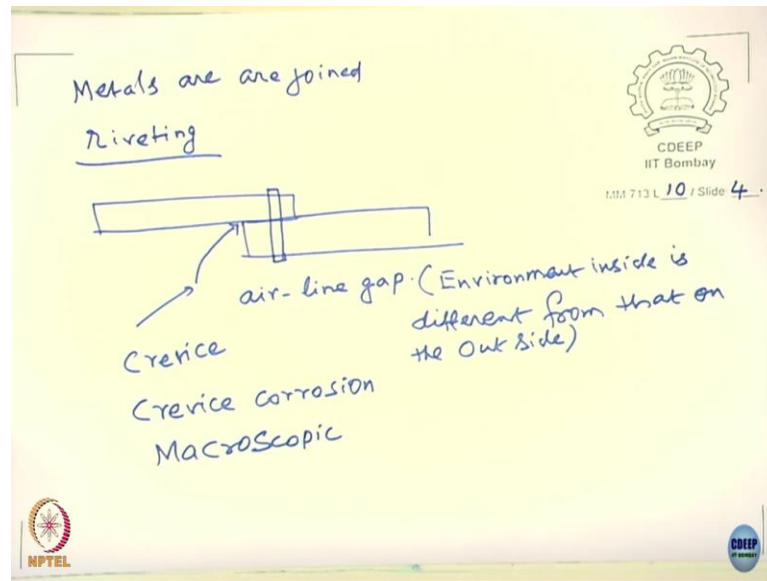 Metals are are joined
Riveting
CDEEP
IIT Bombay
MM 713 L 10 / Slide 4.
air-line gap. (Environment inside is
different from that on
the Out side)
Crevice
Crevice corrosion
Macroscopic
NPTEL
CDEEP
IIT BOMBAY